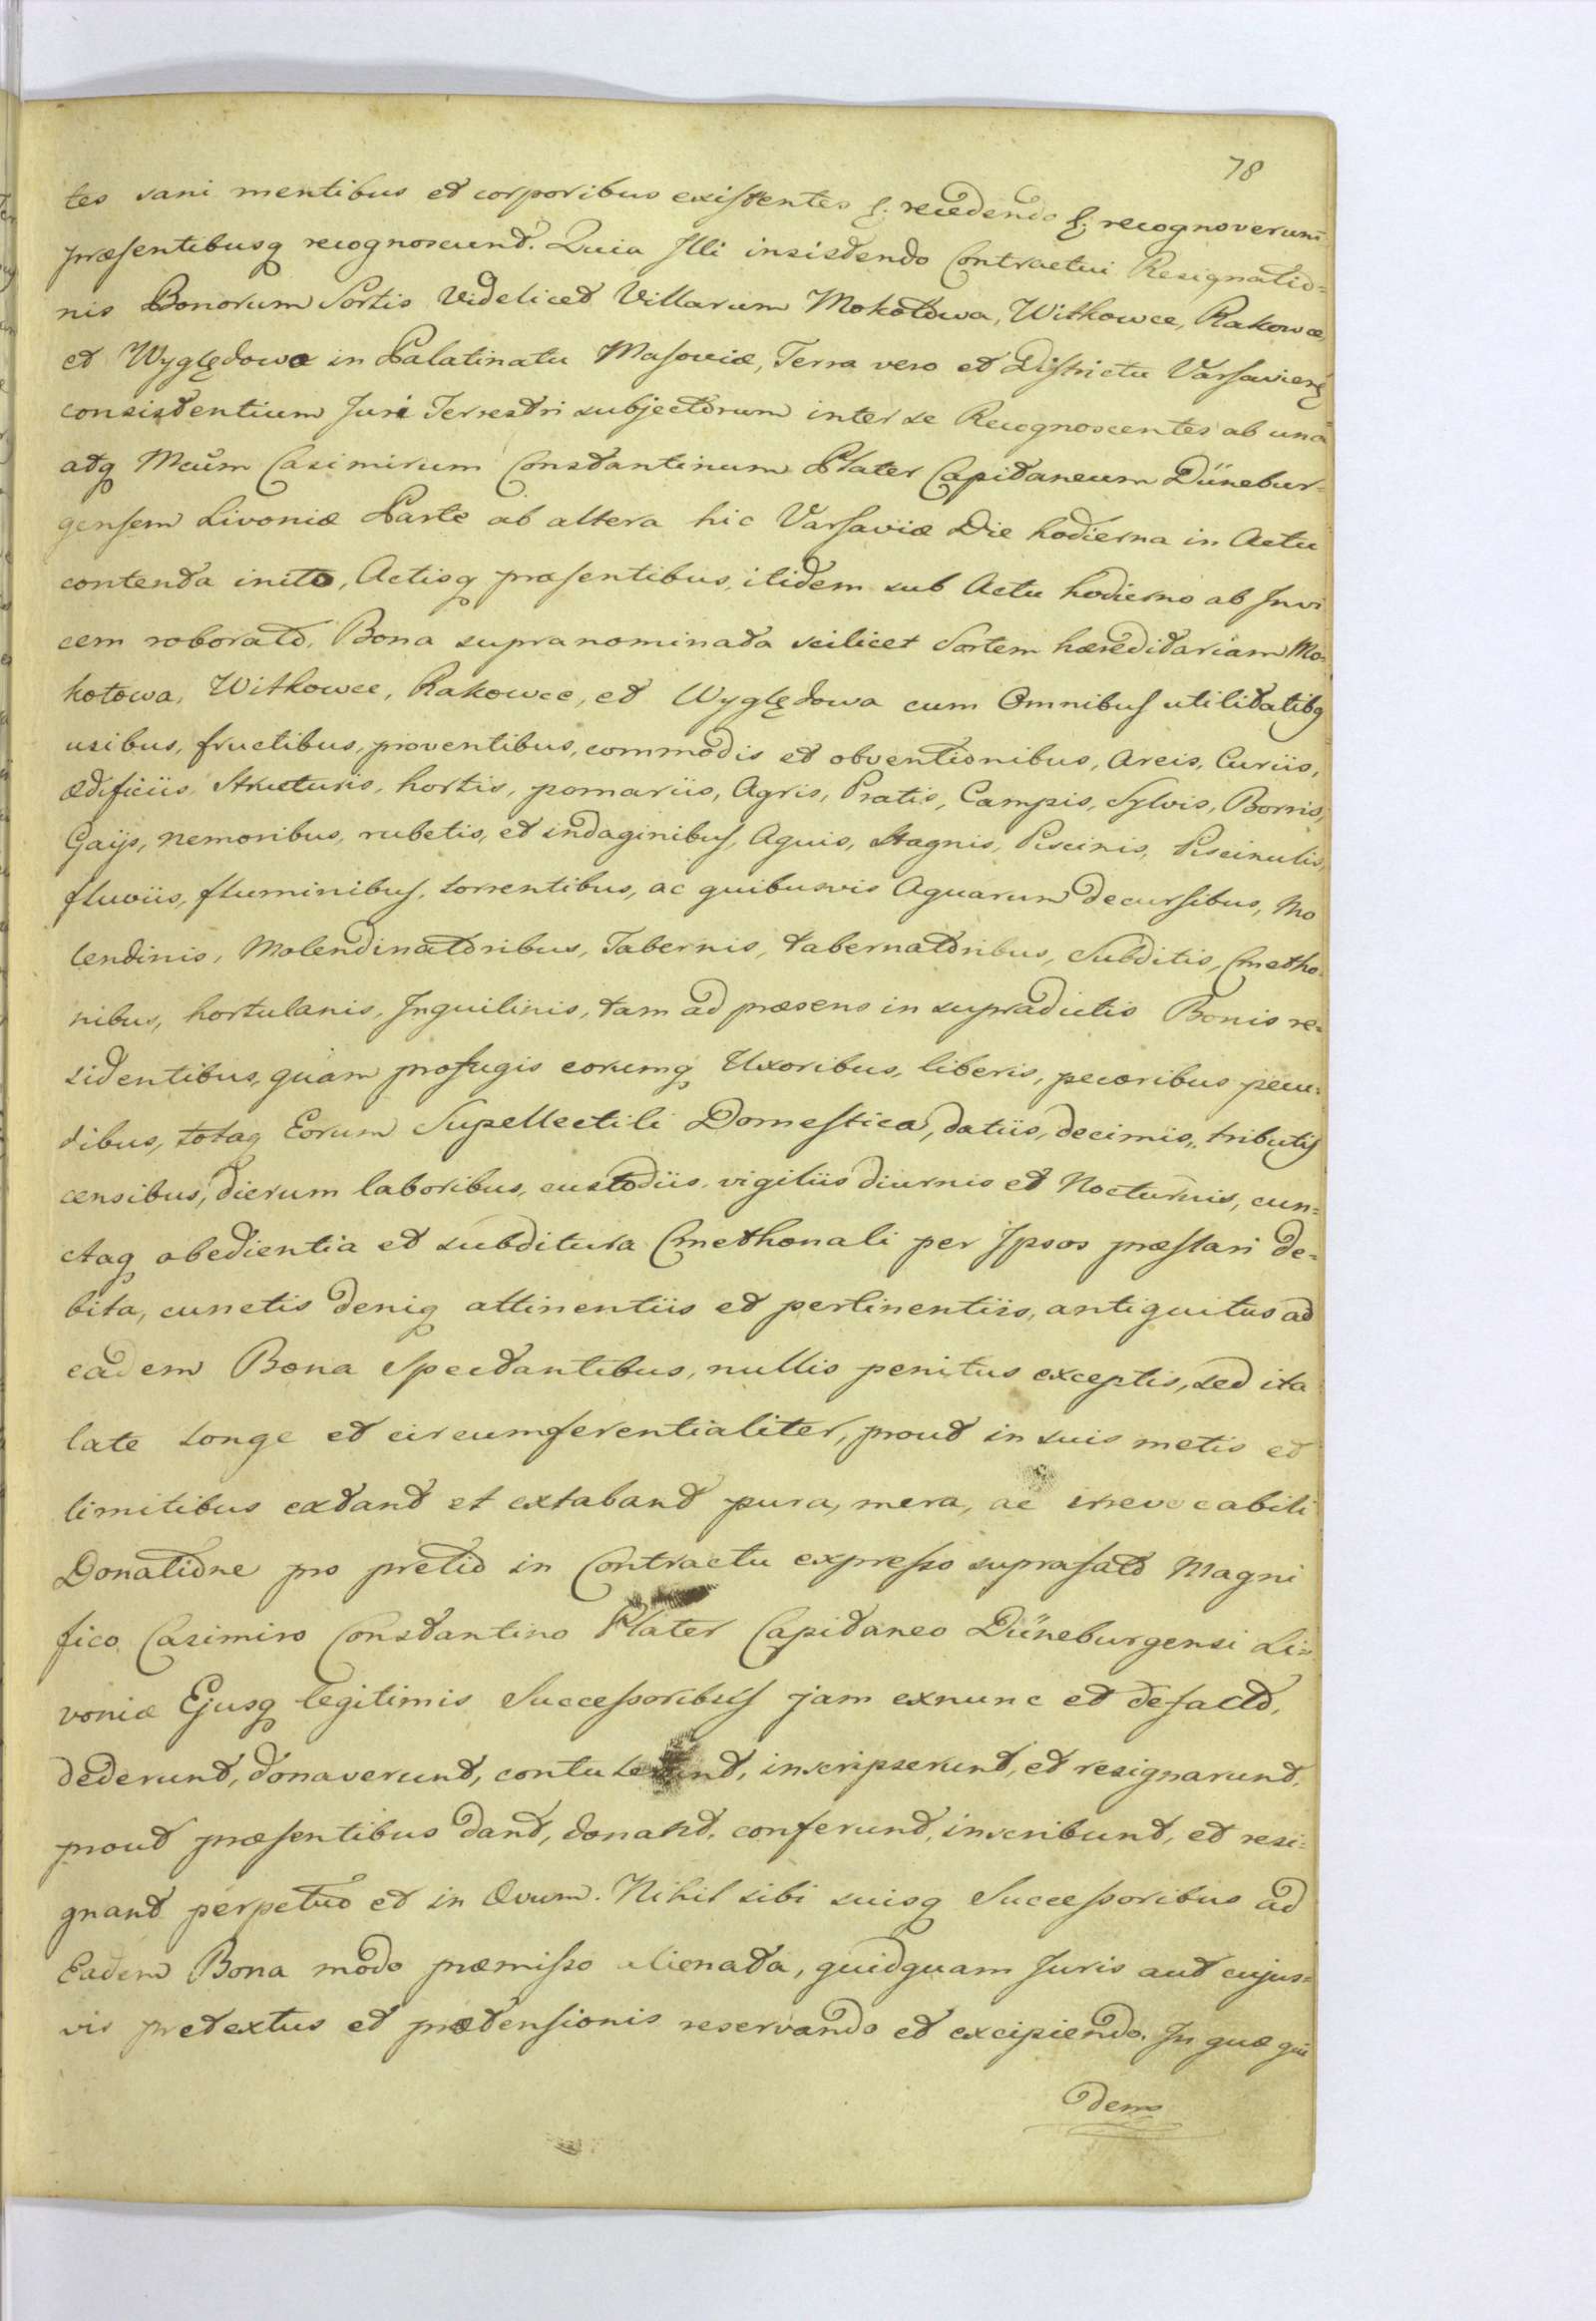 78
tes sani mentibus et corporibus existentes §. recedendo §. recognoverunt
præsentibusq recognoscunt. Quia Illi insistendo Contractui Resignatio=
nis Bonorum Sortis Videlicet Villarum Mokotowa, Witkowce, Rakowce,
et Wyględowa in Palatinatu Masoviæ, Terra vero et Districtu Varsavien
consistentium Juri Terrestri subjectorum inter se Recognoscentes ab una
atq Mcum Casimirum Constantinum Plater Capitaneum Dünebur=
gensem Livoniæ Parte ab altera hic Varsaviæ Die hodierna in Actu
contenta inito, Actisq præsentibus, itidem sub Actu hodierno ab Invi
cem roborato, Bona supranominata scilicet Sortem hæreditariam Mo=
kotowa, Witkowce, Rakowce, et Wyględowa cum Omnibus utilitatibq
usibus, fructibus, proventibus, commodis et obventionibus, Areis, Curiis,
ædificiis, Structuris, hortis, pomariis, Agris, Pratis, Campis, Sylvis, Borris,
Gaijs, nemoribus, rubetis, et indaginibus, Aquis, Stagnis, Piscinis, Piscinulis,
fluviis, fluminibus, torrentibus, ac quibusvis Aquarum decursibus, Mo
lendinis, Molendinatoribus, Tabernis, tabernatoribus, Subditis, Cmetho=
nibus, hortulanis, Inquilinis, tam ad præsens in supradictis Bonis re=
sidentibus, quàm profugis eorumq Uxoribus, liberis, pecoribus pecu=
dibus, totaq Eorum Supellectili Domestica, datiis, decimis, tributis
censibus, dierum laboribus, custodiis, vigiliis diurnis et Nocturnis, cun=
ctaq obedientia et subditura Cmethonali per Ipsos præstari de=
bita, cunctis deniq attinentiis et pertinentiis, antiquitus ad
eadem Bona spectantibus, nullis penitus exceptis, sed ita
late longe et circumferentialiter, prout in suis metis et
limitibus extant et extabant pura, mera, ac irrevocabili
Donatione pro pretio in Contractu expresso suprafato Magni
fico Casimiro Constantino Plater Capitaneo Düneburgensi Li=
voniæ Ejusq legitimis Successoribus jam exnunc et defacto,
dederunt, donaverunt, contulerunt, inscripserunt, et resignarunt,
prout præsentibus dant, donant, conferunt, inscribunt, et resi=
gnant perpetuo et in Ævum. Nihil sibi suisq Successoribus ad
Eadem Bona modo præmisso alienata, quidquam Juris aut cujus=
vis pretextus et prætensionis reservando et excipiendo. In quæ qui
dem